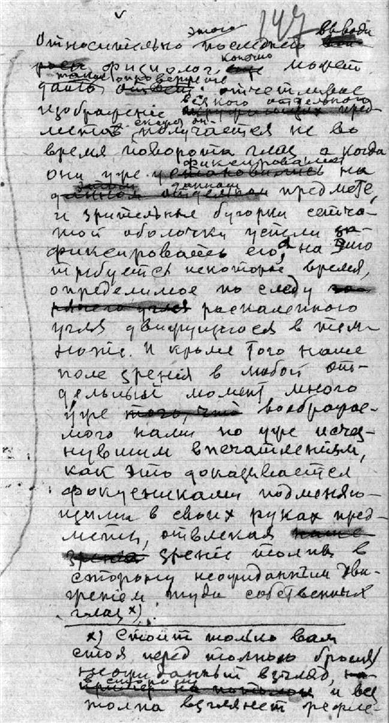 147
этого
Относительно последняго вывода
физиолог, конечно может
дать такое опровержение: отчетливое
изображение всякого отдельного
предмета получается не во
время поворота глаз, а когда
они уже фиксированы на
этом данном предмете,
и зрительные бугорки сетча-
той оболочки успели за-
фиксировать его, а на это
требуется некоторое время,
определимое по следу
раскаленного
угля движущегося в тем-
ноте. И кроме того наше
поле зрения в любой от-
дельный момент много
уже воображае-
мого нами по уже исчез-
нувшим впечатлениям,
как это доказывается
фокусниками подменяю-
щими в своих руках пред-
меты, отвлекая
зрение толпы в
сторону неожиданным дви-
жением туда собственных
глаз x).
x) Стоит только вам
стоя перед толпою бросить
неожиданный взгляд,
в сторону и вся
толпа взглянет